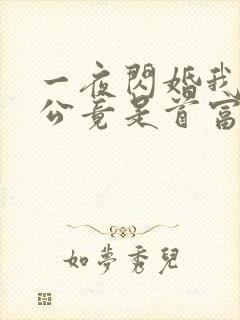 一夜閃婚我
公竟是首富
如夢秀兒